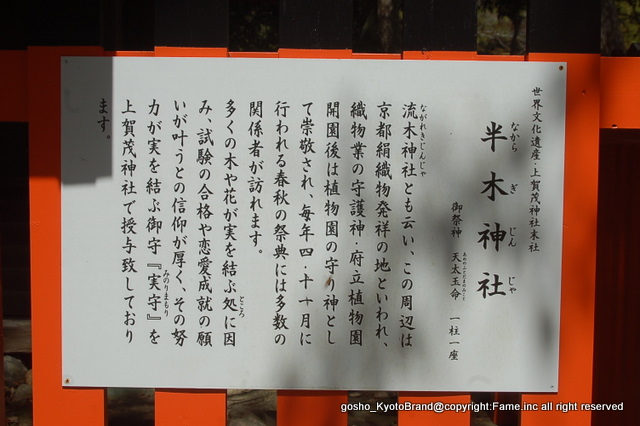 世界文化遺産・上賀茂神社末社
半木神社
なからぎじんじゃ
御祭神 天太玉命 一柱一座
あめのふとだまのみこと
流木神社とも云い、この周辺は
ながれきじんじゃ
京都絹織物発祥の地といわれ、
織物業の守護神・府立植物園
開園後は植物園の守り神とし
て崇敬され、毎年四・十一月に
行われる春秋の祭典には多数の
関係者が訪れます。
多くの木や花が実を結ぶ処に因
ところ
み、試験の合格や恋愛成就の願
いが叶うとの信仰が厚く、その努
力が実を結ぶ御守『実守』を
みのりまもり
上賀茂神社で授与致しており
ます。
gosho_KyotoBrand@copyright:Fame.inc all right reserved